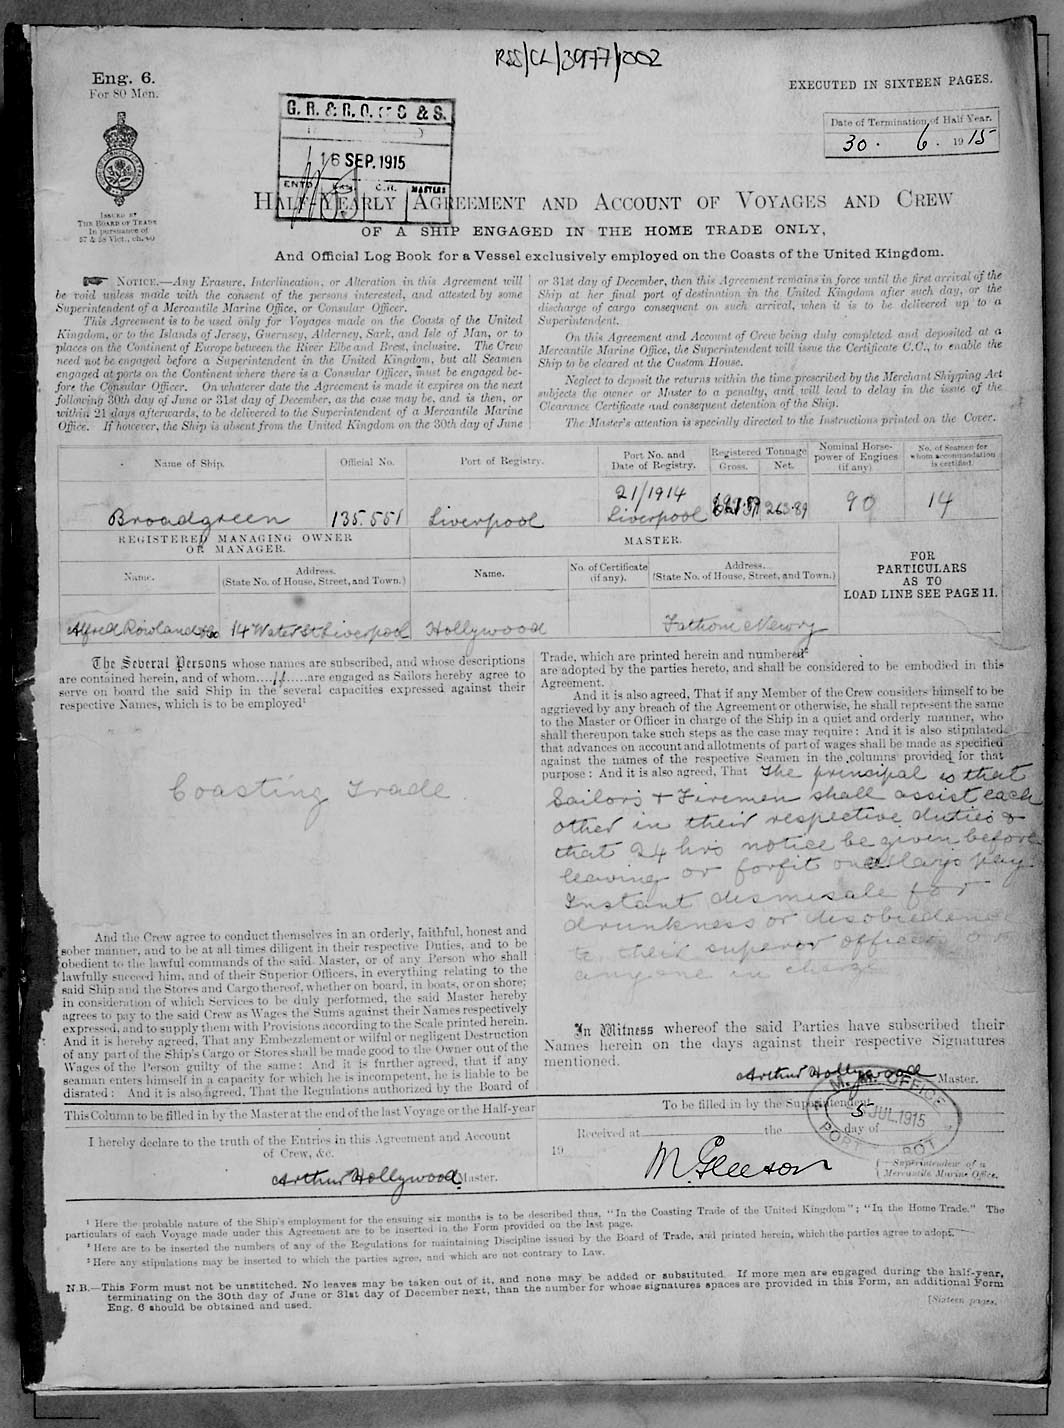 RSS/CL/3977/002
Eng. 6.
For 80 Men.
EXECUTED IN SIXTEEN PAGES.
Date of Termination of Half Year.
30. 6. 1915
G. R. & R. O. OF S & S.
16 SEP. 1915
ENTD C.R. MASTERS
ISSUED BY
THE BOARD OF TRADE
In pursuance of
57 & 58 Vict., ch. 60
HALF-YEARLY AGREEMENT AND ACCOUNT OF VOYAGES AND CREW
OF A SHIP ENGAGED IN THE HOME TRADE ONLY,
And Official Log Book for a Vessel exclusively employed on the Coasts of the United Kingdom.
NOTICE.—Any Erasure, Interlineation, or Alteration in this Agreement will
be void unless made with the consent of the persons interested, and attested by some
Superintendent of a Mercantile Marine Office, or Consular Officer.
This Agreement is to be used only for Voyages made on the Coasts of the United
Kingdom, or to the Islands of Jersey, Guernsey, Alderney, Sark, and Isle of Man, or to
places on the Continent of Europe between the River Elbe and Brest, inclusive. The Crew
need not be engaged before a Superintendent in the United Kingdom, but all Seamen
engaged at ports on the Continent where there is a Consular Officer, must be engaged be-
fore the Consular Officer. On whatever date the Agreement is made it expires on the next
following 30th day of June or 31st day of December, as the case may be, and is then, or
within 21 days afterwards, to be delivered to the Superintendent of a Mercantile Marine
Office. If however, the Ship is absent from the United Kingdom on the 30th day of June
or 31st day of December, then this Agreement remains in force until the first arrival of the
Ship at her final port of destination in the United Kingdom after such day, or the
discharge of cargo consequent on such arrival, when it is to be delivered up to a
Superintendent.
On this Agreement and Account of Crew being duly completed and deposited at a
Mercantile Marine Office, the Superintendent will issue the Certificate C.C., to enable the
Ship to be cleared at the Custom House.
Neglect to deposit the returns within the time prescribed by the Merchant Shipping Act
subjects the owner or Master to a penalty, and will lead to delay in the issue of the
Clearance Certificate and consequent detention of the Ship.
The Master's attention is specially directed to the Instructions printed on the Cover.
Name of Ship.
Official No.
Port of Registry.
Port No. and
Date of Registry.
Registered Tonnage
Gross. Net.
Nominal Horse-
power of Engines
(if any)
No. of Seamen for
whom accommodation
is certified.
Broadgreen
135.551
Liverpool
21/1914
Liverpool
263.89
90
14
REGISTERED MANAGING OWNER
OR MANAGER.
MASTER.
Name.
Address.
(State No. of House, Street, and Town.)
Name.
No. of Certificate
(if any).
Address.
(State No. of House, Street, and Town.)
FOR
PARTICULARS
AS TO
LOAD LINE SEE PAGE 11.
Alfred Rowland & Co
14 Water St Liverpool
Hollywood
Fathom Newry
The Several Persons whose names are subscribed, and whose descriptions
are contained herein, and of whom....11....are engaged as Sailors hereby agree to
serve on board the said Ship in the several capacities expressed against their
respective Names, which is to be employed¹
Coasting Trade.
And the Crew agree to conduct themselves in an orderly, faithful, honest and
sober manner, and to be at all times diligent in their respective Duties, and to be
obedient to the lawful commands of the said Master, or of any Person who shall
lawfully succeed him, and of their Superior Officers, in everything relating to the
said Ship and the Stores and Cargo thereof, whether on board, in boats, or on shore;
in consideration of which Services to be duly performed, the said Master hereby
agrees to pay to the said Crew as Wages the Sums against their Names respectively
expressed, and to supply them with Provisions according to the Scale printed herein.
And it is hereby agreed, That any Embezzlement or wilful or negligent Destruction
of any part of the Ship's Cargo or Stores shall be made good to the Owner out of the
Wages of the Person guilty of the same: And it is further agreed, that if any
seaman enters himself in a capacity for which he is incompetent, he is liable to be
disrated: And it is also agreed, That the Regulations authorized by the Board of
Trade, which are printed herein and numbered²
are adopted by the parties hereto, and shall be considered to be embodied in this
Agreement.
And it is also agreed, That if any Member of the Crew considers himself to be
aggrieved by any breach of the Agreement or otherwise, he shall represent the same
to the Master or Officer in charge of the Ship in a quiet and orderly manner, who
shall thereupon take such steps as the case may require: And it is also stipulated
that advances on account and allotments of part of wages shall be made as specified
against the names of the respective Seamen in the columns provided for that
purpose: And it is also agreed, That The principal is that
Sailors & Firemen shall assist each
other in their respective duties &
that 24 hrs notice be given before
leaving or forfit one days pay
Instant dismisale for
drunkness or disobedience
to their superor officers or
anyone in charge
In Witness whereof the said Parties have subscribed their
Names herein on the days against their respective Signatures
mentioned.
Arthur Hollywood Master.
This Column to be filled in by the Master at the end of the last Voyage or the Half-year
I hereby declare to the truth of the Entries in this Agreement and Account
of Crew, &c.
Arthur Hollywood Master.
To be filled in by the Superintendent
M. M. OFFICE
5 JUL 1915
PORT
Received at the day of
19
M. Gleeson
Superintendent of a
Mercantile Marine Office.
¹ Here the probable nature of the Ship's employment for the ensuing six months is to be described thus, "In the Coasting Trade of the United Kingdom"; "In the Home Trade." The
particulars of each Voyage made under this Agreement are to be inserted in the Form provided on the last page.
² Here are to be inserted the numbers of any of the Regulations for maintaining Discipline issued by the Board of Trade, and printed herein, which the parties agree to adopt.
³ Here any stipulations may be inserted to which the parties agree, and which are not contrary to Law.
N.B.—This Form must not be unstitched. No leaves may be taken out of it, and none may be added or substituted. If more men are engaged during the half-year,
terminating on the 30th day of June or 31st day of December next, than the number for whose signatures spaces are provided in this Form, an additional Form
Eng. 6 should be obtained and used.
[Sixteen pages.